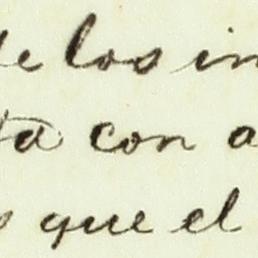 de los in
ta con a
que el